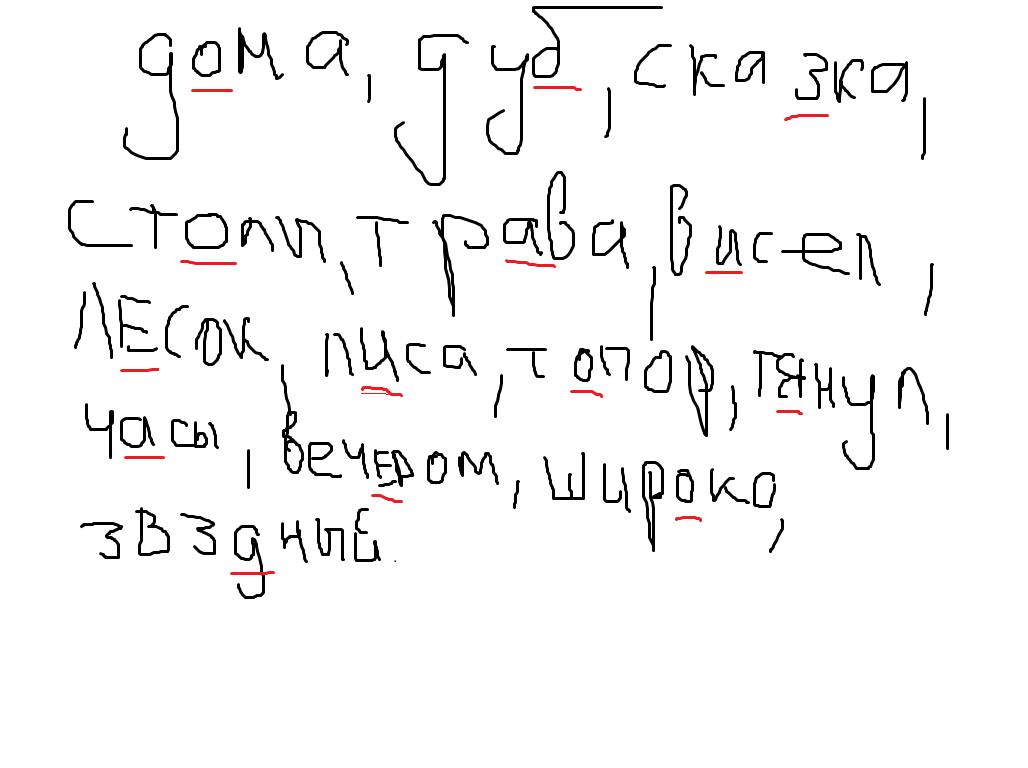 дома, дуб, сказка,
столы, трава, висел,
ЛЕСОК, лиса, топор, тянул,
часы, вечером, широко,
звздные.